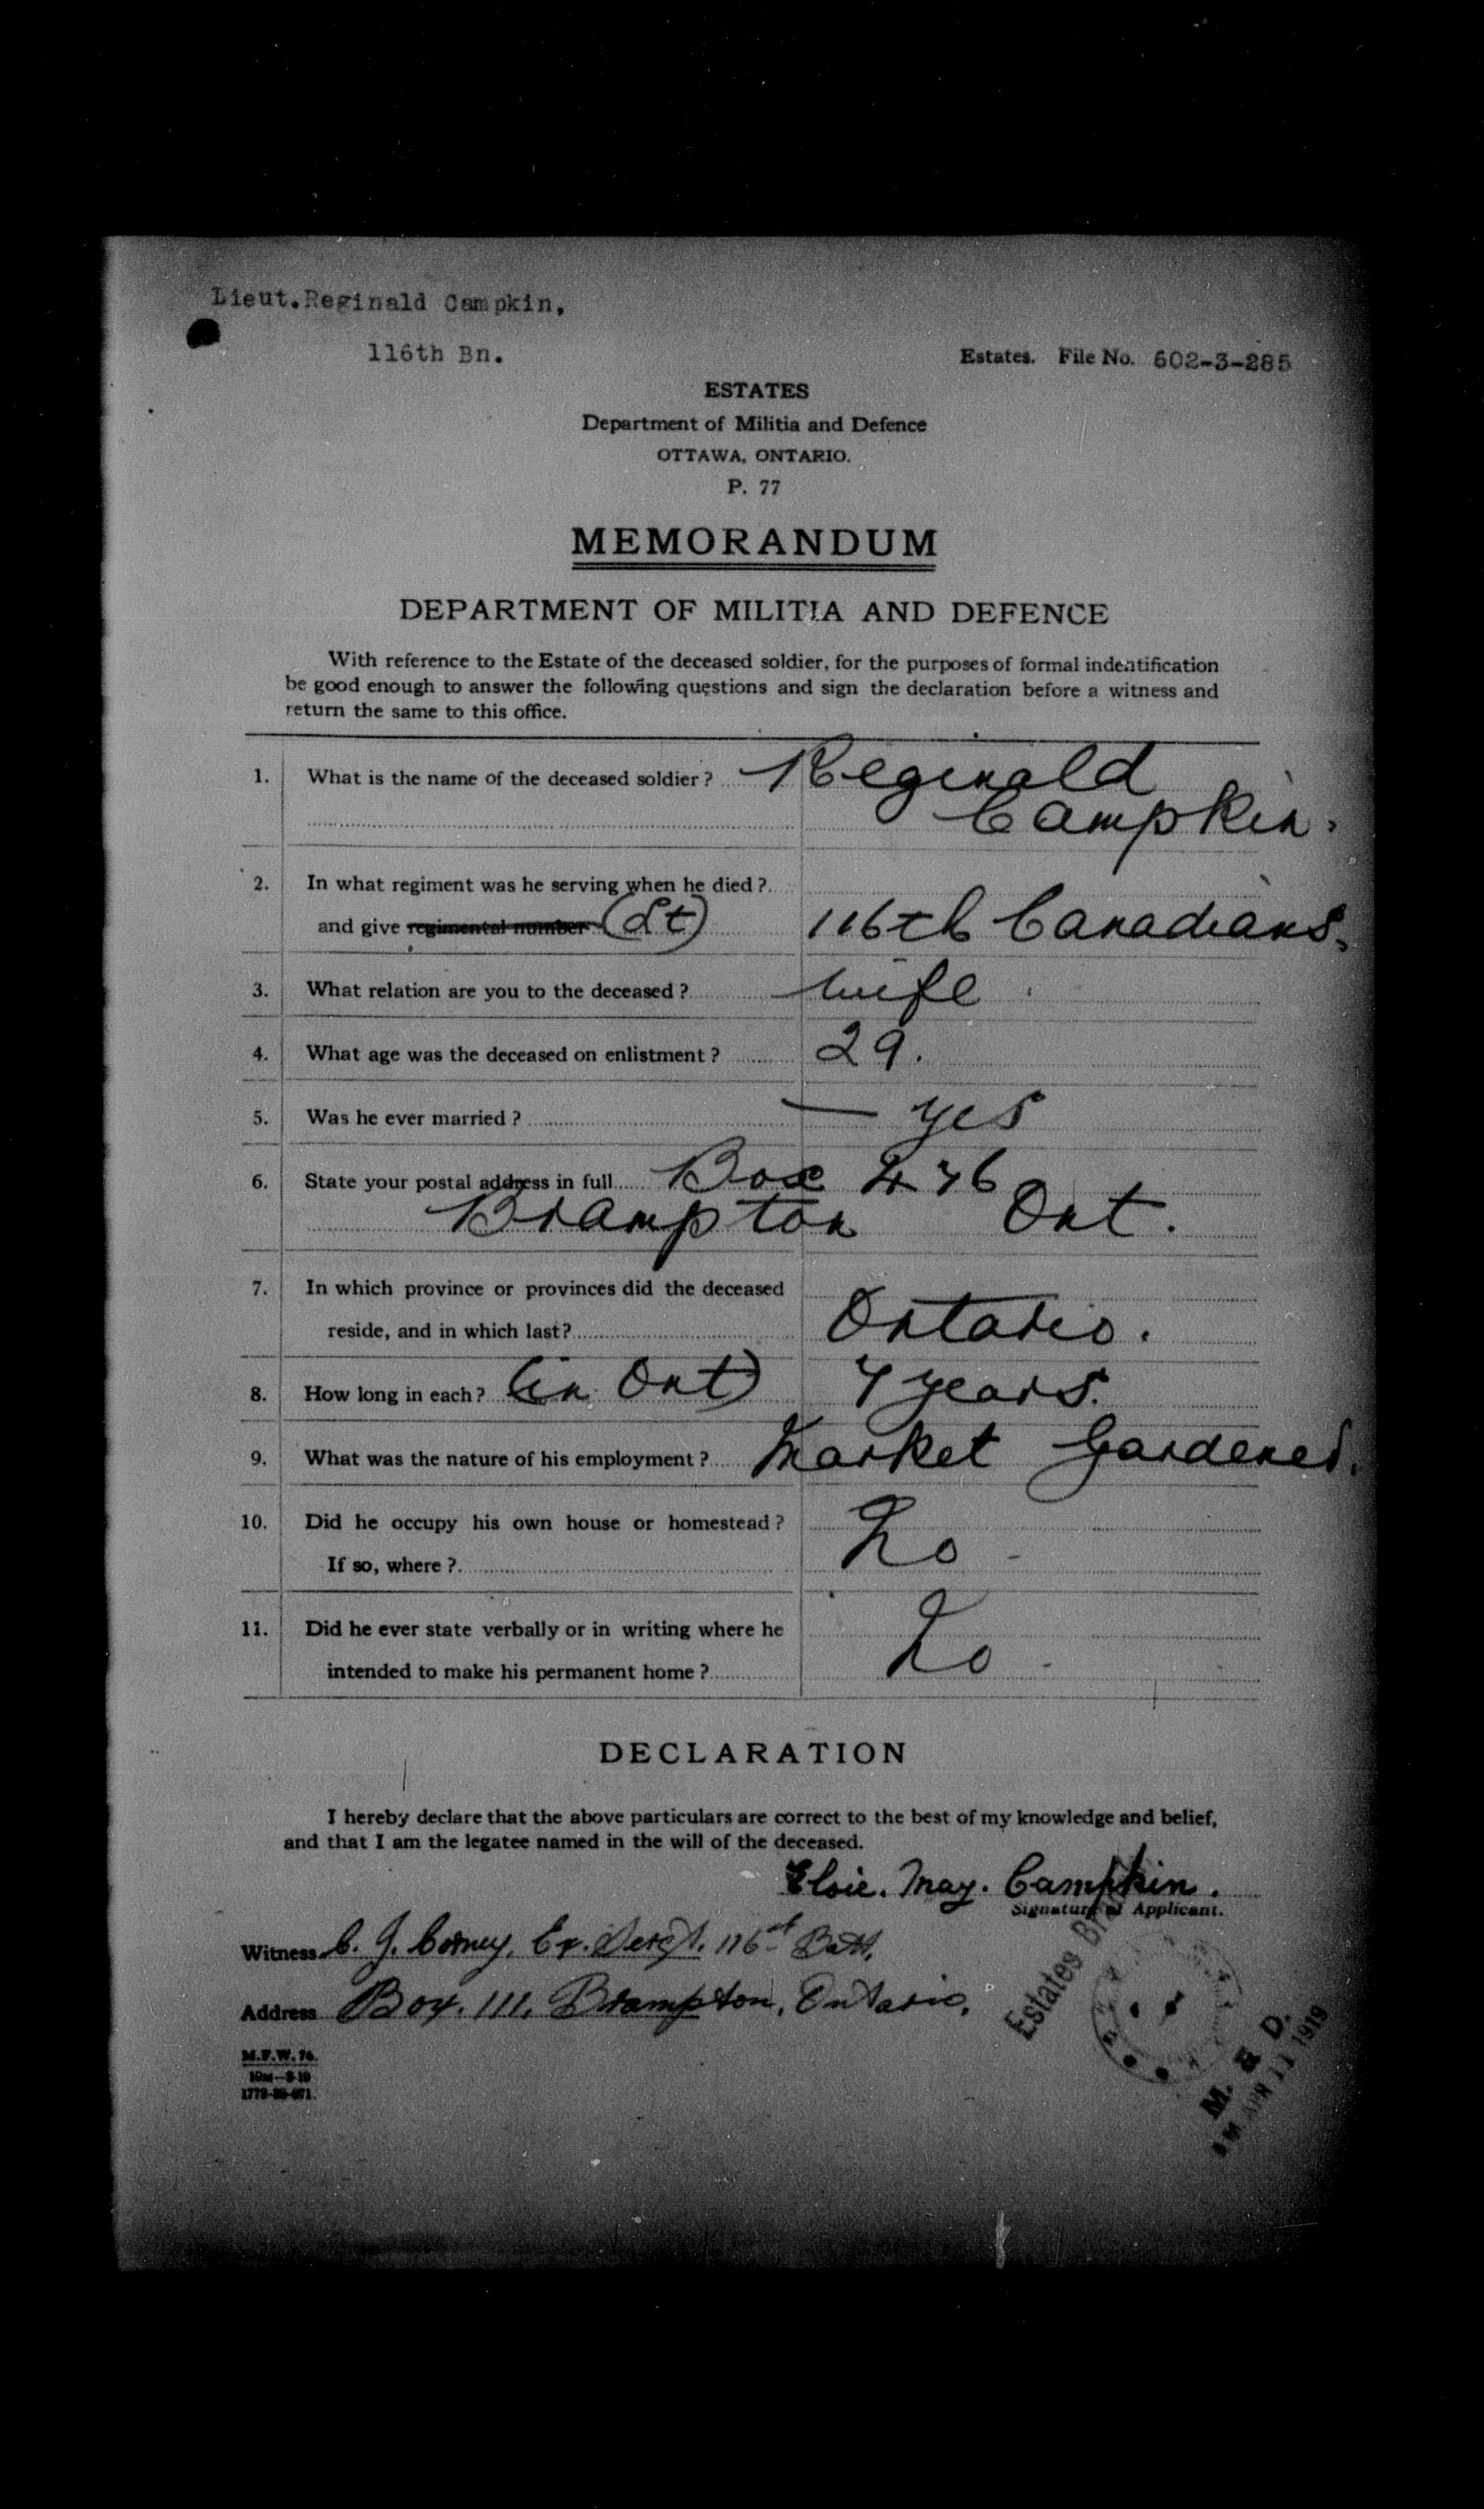 Lieut.Reginald Campkin,
116th Bn.
Estates. File No. 602-3-285
ESTATES
Department of Militia and Defence
OTTAWA, ONTARIO.
P. 77
MEMORANDUM
DEPARTMENT OF MILITIA AND DEFENCE
With reference to the Estate of the deceased soldier, for the purposes of formal indentification
be good enough to answer the following questions and sign the declaration before a witness and
return the same to this office.
1. What is the name of the deceased soldier? Reginald
Campkin.
2. In what regiment was he serving when he died?
and give regimental number (Lt) 116th Canadians.
3. What relation are you to the deceased? wife
4. What age was the deceased on enlistment? 29.
5. Was he ever married? — yes
6. State your postal address in full Box 476
Brampton Ont.
7. In which province or provinces did the deceased
reside, and in which last? Ontario.
8. How long in each? (in Ont) 7 years.
9. What was the nature of his employment? Market Gardener.
10. Did he occupy his own house or homestead?
If so, where? No -
11. Did he ever state verbally or in writing where he
intended to make his permanent home? No -
DECLARATION
I hereby declare that the above particulars are correct to the best of my knowledge and belief,
and that I am the legatee named in the will of the deceased.
Elsie. May. Campkin.
Signature of Applicant.
Witness C. J. Corney, Ex. Sergt. 116th Batt.
Address Box. 111, Brampton, Ontario.
Estates Br
M. & D.
APR 11 1919
M.F.W. 76.
10M—3-19
1772-39-871.